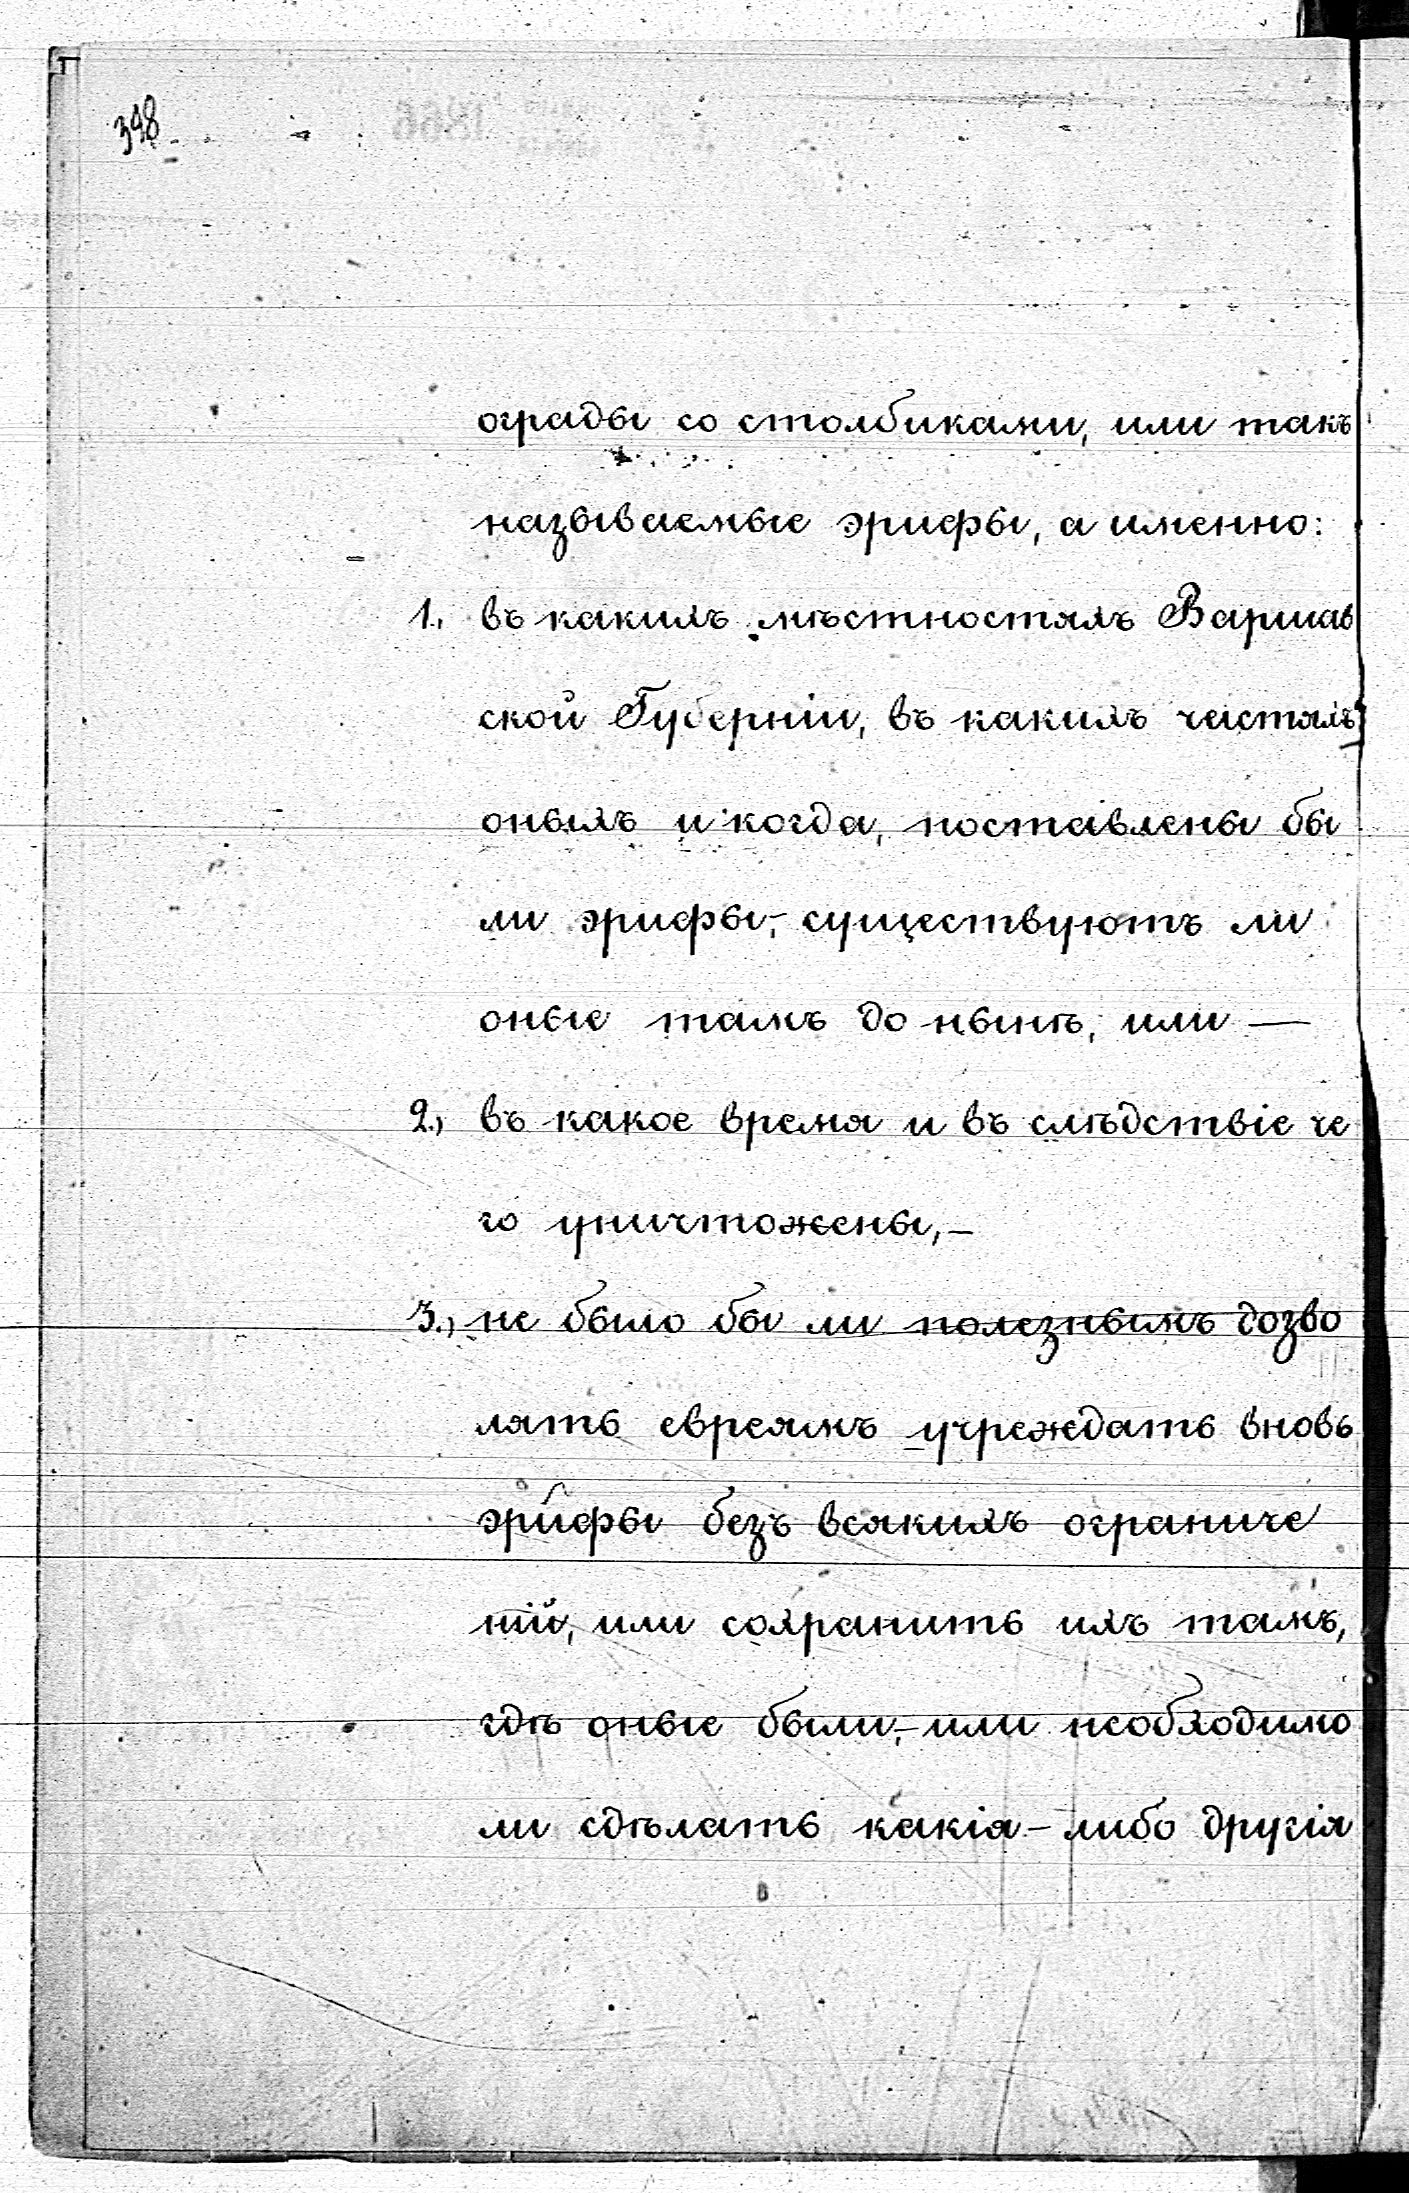 348
ограды со столбиками, или такъ
называемые эрифы, а именно:
1., въ какихъ мѣстностяхъ Варшав
ской Губерніи, въ какихъ частяхъ
оныхъ и когда, поставлены бы
ли эрифы,- существуютъ ли
оные тамъ до нынѣ, или —
2., въ какое время и въ слѣдствіе че
го уничтожены,-
3., не было бы ли полезнымъ дозво
лять евреямъ учреждать вновь
эрифы безъ всякихъ ограниче
ній, или сохранить ихъ тамъ,
гдѣ оные были,- или необходимо
ли сдѣлать какія-либо другія